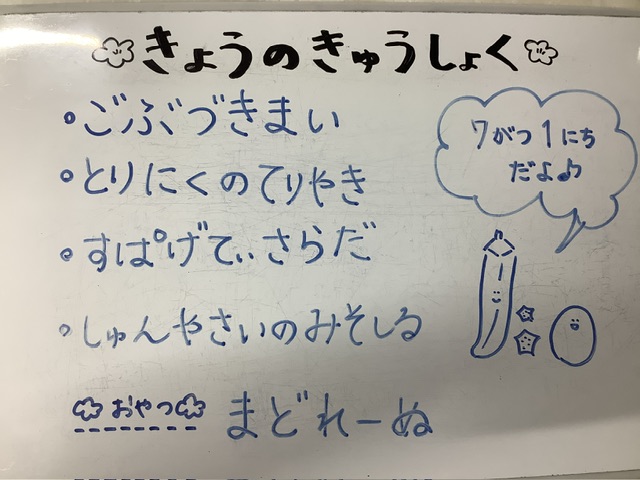 きょうのきゅうしょく
・ごぶづきまい
・とりにくのてりやき
・すぱげてぃさらだ
・しゅんやさいのみそしる
おやつ まどれーぬ
7がつ1にち
だよ♪